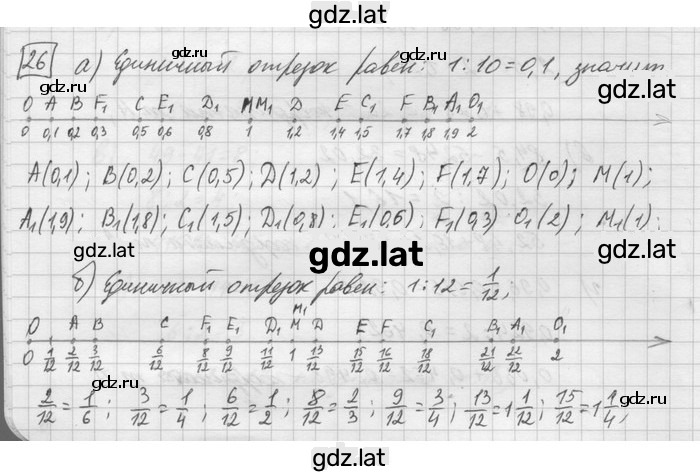 gdz.lat
26 а) Единичный отрезок равен: 1:10=0,1, значит
gdz.lat gdz.lat
O A B F₁ C E₁ D₁ M M₁ D E C₁ F B₁ A₁ O₁
0 0,1 0,2 0,3 0,5 0,6 0,8 1 1,2 1,4 1,5 1,7 1,8 1,9 2
A(0,1); B(0,2); C(0,5); D(1,2); E(1,4); F(1,7); O(0); M(1);
A₁(1,9); B₁(1,8); C₁(1,5); D₁(0,8); E₁(0,6); F₁(0,3) O₁(2); M₁(1);
gdz.lat
б) Единичный отрезок равен: 1:12=1/12,
gdz.lat gdz.lat
M₁
O A B C F₁ E₁ D₁ M D E F C₁ B₁ A₁ O₁
0 1/12 2/12 3/12 6/12 8/12 9/12 11/12 1 13/12 15/12 16/12 18/12 21/12 22/12 2
2/12=1/6; 3/12=1/4; 6/12=1/2; 8/12=2/3; 9/12=3/4; 13/12=1 1/12; 15/12=1 1/4,
gdz.lat gdz.lat
gdz.lat